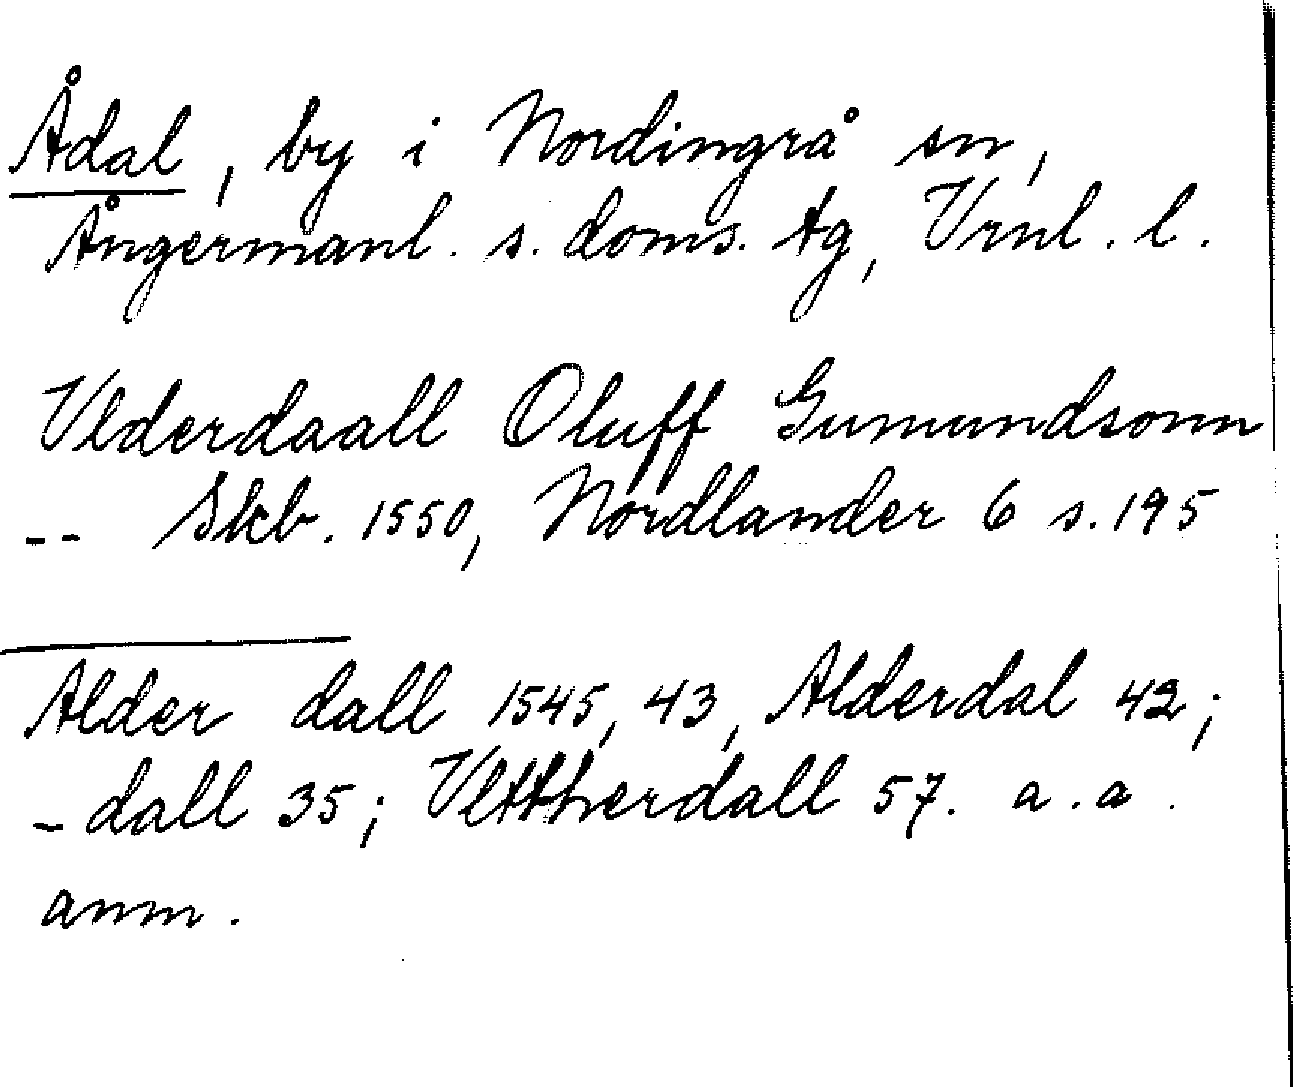 Ådal, by i Nordingrå sn,
Ångermanl. s. doms. tg, Vrnl. l.
Vlderdaall Oluff Gumundsonn
-- Skb. 1550, Nordlander 6 s. 195
Alder dall 1545, 43, Alderdal 42;
-dall 35; Vlttherdall 57. a. a.
anm.